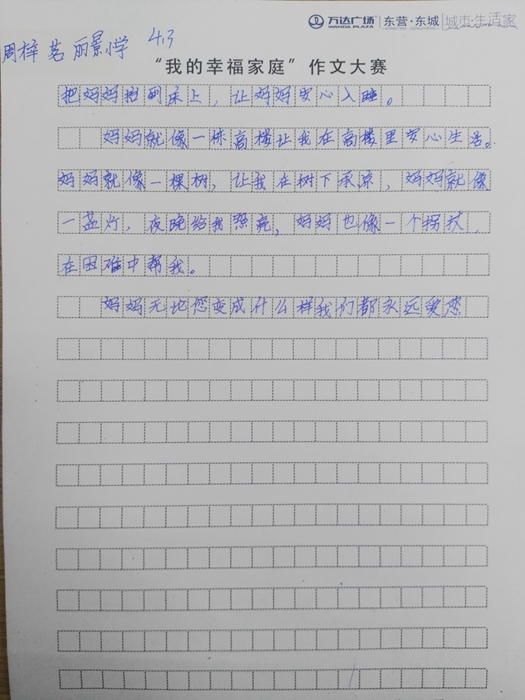 万达广场 WANDA PLAZA 东营·东城 城市·生活家
周梓茗 丽景小学 4.3
“我的幸福家庭”作文大赛
把妈妈抬到床上，让妈妈安心入睡。
妈妈就像一栋高楼让我在高楼里安心生活。
妈妈就像一棵树，让我在树下承凉，妈妈就像
一盏灯，夜晚给我照亮，妈妈也像一个拐杖，
在困难中帮我。
妈妈无论您变成什么样我们都永远爱您